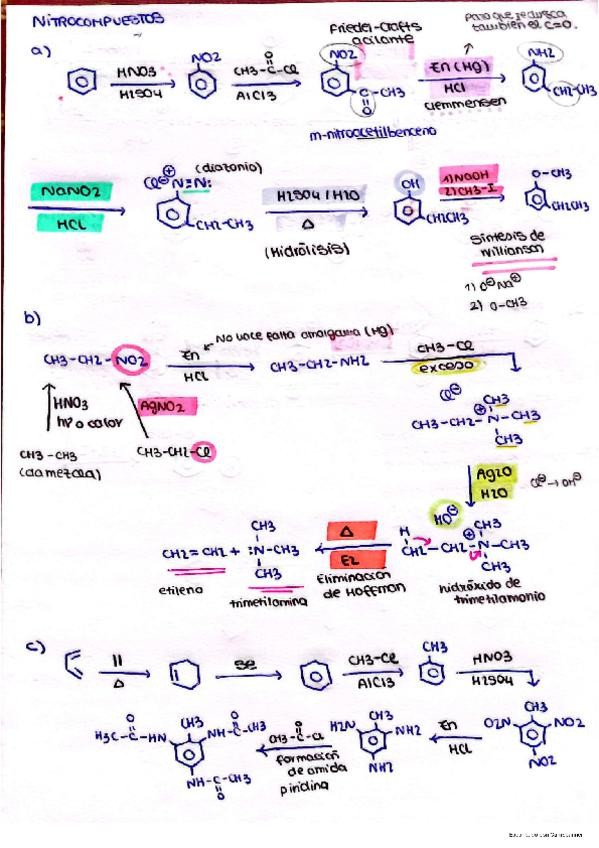 NITROCOMPUESTOS
Friedel-Crafts
acilante
para que reduzca
también el C=O.
a)
HNO3
H2SO4
NO2
CH3-C-Cl
O
AlCl3
NO2
C-CH3
O
Zn (Hg)
HCl
Clemmensen
NH2
CH2-CH3
m-nitroacetilbenceno
NaNO2
HCL
Cl⊖ ⊕
N=N:
(diazonio)
CH2-CH3
H2SO4 / H2O
Δ
(Hidrólisis)
OH
CH2CH3
1) NaOH
2) CH3-I
O-CH3
CH2CH3
Síntesis de
Willianson
1) O⊖Na⊕
2) O-CH3
b)
No hace falta amalgama (Hg)
CH3-CH2-NO2
Zn
HCl
CH3-CH2-NH2
CH3-Cl
exceso
HNO3
AgNO2
CH3-CH3
CH3-CH2-Cl
Cl⊖
CH3
CH3-CH2-N-CH3
⊕
CH3
Ag2O
H2O
Cl⊖→OH⊖
HO⊖
H
CH3
CH2-CH2-N-CH3
⊕
CH3
hidróxido de
trimetilamonio
Δ
E2
Eliminación
de Hoffman
CH3
CH2=CH2 + :N-CH3
CH3
etileno
trimetilamina
c)
||
Δ
Se
CH3-Cl
AlCl3
CH3
HNO3
H2SO4
CH3
O2N
NO2
NO2
Zn
HCl
CH3
H2N
NH2
NH2
O
CH3-C-Cl
formación
de amida
piridina
O
H3C-C-HN
CH3
O
NH-C-CH3
O
NH-C-CH3